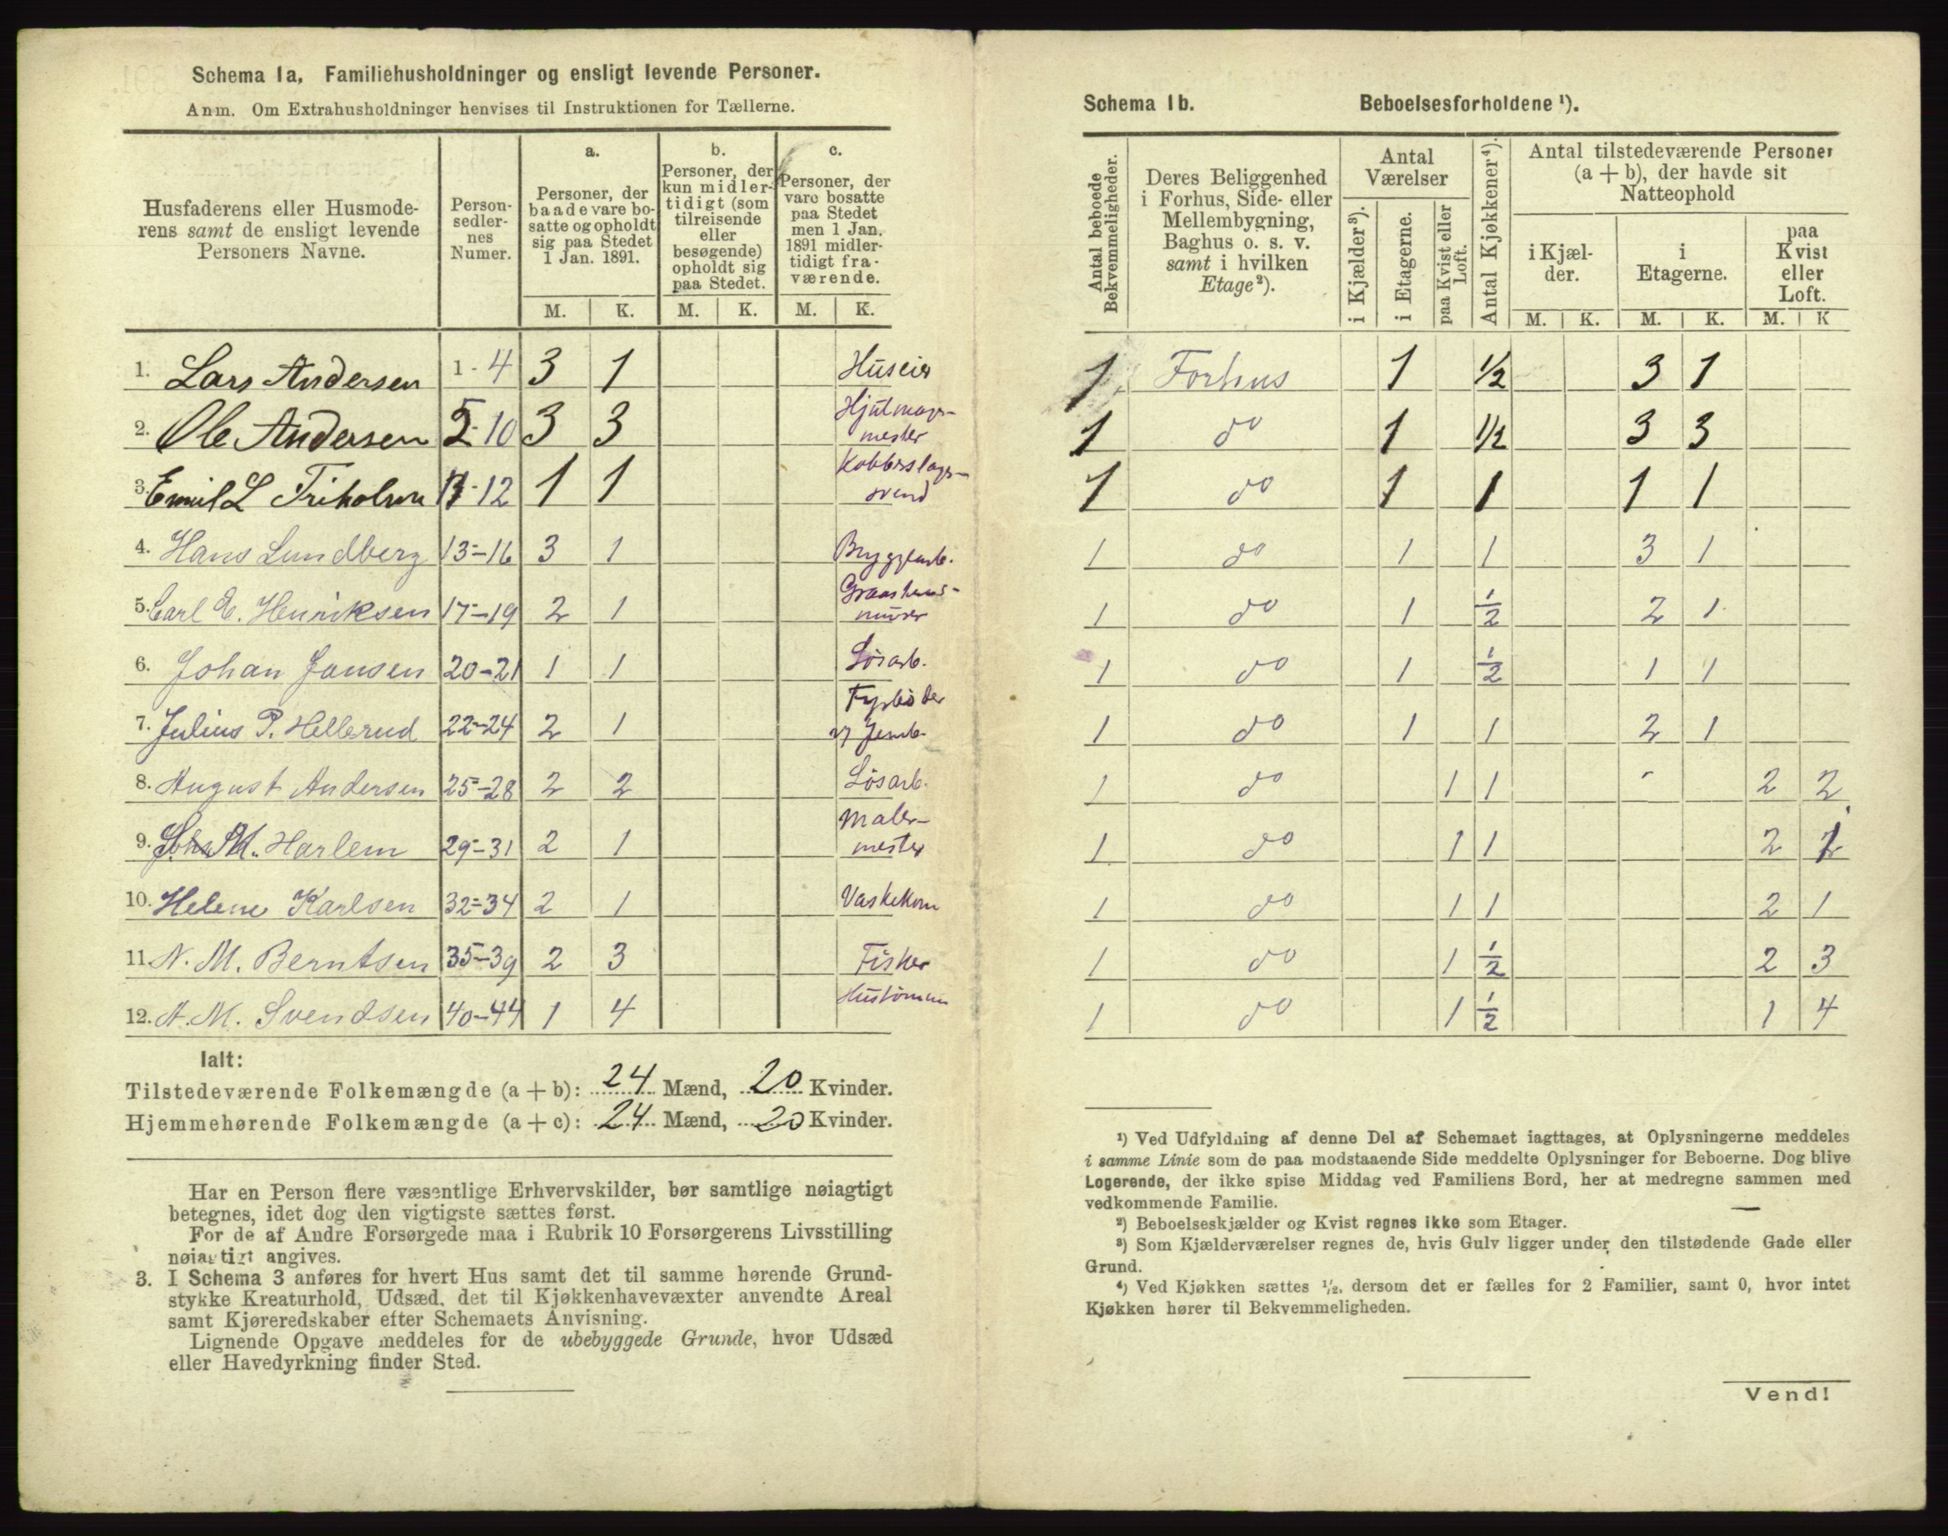 Schema 1a. Familiehusholdninger og ensligt levende Personer.
Anm. Om Extrahusholdninger henvises til Instruktionen for Tællerne.
Husfaderens eller Husmode-
rens samt de ensligt levende
Personers Navne.
Person-
sedler-
nes
Numer.
a.
Personer, der
baade vare bo-
satte og opholdt
sig paa Stedet
1 Jan. 1891.
b.
Personer, der
kun midler-
tidigt (som
tilreisende
eller
besøgende)
opholdt sig
paa Stedet.
c.
Personer, der
vare bosatte
paa Stedet
men 1 Jan.
1891 midler-
tidigt fra-
værende.
M. K. M. K. M. K.
1. Lars Andersen 1-4 3 1 Huseier
2. Ole Andersen 5-10 3 3 Hjulmager-
mester
3. Emil L 11-12 1 1 Kobberslager-
svend
4. Hans Lundberg 13-16 3 1 Bryggearb.
5. Carl E. Henriksen 17-19 2 1 Graastens-
murer
6. Johan Jansen 20-21 1 1 Løsarb.
7. Julius P. Hellerud 22-24 2 1 Fyrbøder
v/ Jernb.
8. August Andersen 25-28 2 2 Løsarb.
9. Joh. M. Harlem 29-31 2 1 Maler-
mester
10. Helene Karlsen 32-34 2 1 Vaskekone
11. N. M. Berntsen 35-39 2 3 Fisker
12. A. M. Svendsen 40-44 1 4
Ialt:
Tilstedeværende Folkemængde (a + b): 24 Mænd, 20 Kvinder.
Hjemmehørende Folkemængde (a + c): 24 Mænd, 20 Kvinder.
Har en Person flere væsentlige Erhvervskilder, bør samtlige nøiagtigt
betegnes, idet dog den vigtigste sættes først.
For de af Andre Forsørgede maa i Rubrik 10 Forsørgerens Livsstilling
nøiagtigt angives.
3. I Schema 3 anføres for hvert Hus samt det til samme hørende Grund-
stykke Kreaturhold, Udsæd, det til Kjøkkenhavevæxter anvendte Areal
samt Kjøreredskaber efter Schemaets Anvisning.
Lignende Opgave meddeles for de ubebyggede Grunde, hvor Udsæd
eller Havedyrkning finder Sted.
Schema 1b. Beboelsesforholdene ¹).
Antal beboede
Bekvemmeligheder.
Deres Beliggenhed
i Forhus, Side- eller
Mellembygning,
Baghus o. s. v.
samt i hvilken
Etage²).
Antal
Værelser
i Kjælder³).
i Etagerne.
paa Kvist eller
Loft.
Antal Kjøkkener⁴).
Antal tilstedeværende Personer
(a + b), der havde sit
Natteophold
i Kjæl-
der.
i
Etagerne.
paa
Kvist
eller
Loft.
M. K. M. K. M. K
1 Forhus 1 1/2 3 1
1 do 1 1/2 3 3
1 do 1 1 1 1
1 do 1 1 3 1
1 do 1 1/2 2 1
1 do 1 1/2 1 1
1 do 1 1 2 1
1 do 1 1 2 2
1 do 1 1 2 1
1 do 1 1 2 1
1 do 1 1/2 2 3
1 do 1 1/2 1 4
¹) Ved Udfyldning af denne Del af Schemaet iagttages, at Oplysningerne meddeles
i samme Linie som de paa modstaaende Side meddelte Oplysninger for Beboerne. Dog blive
Logerende, der ikke spise Middag ved Familiens Bord, her at medregne sammen med
vedkommende Familie.
²) Beboelseskjælder og Kvist regnes ikke som Etager.
³) Som Kjælderværelser regnes de, hvis Gulv ligger under den tilstødende Gade eller
Grund.
⁴) Ved Kjøkken sættes ½, dersom det er fælles for 2 Familier, samt 0, hvor intet
Kjøkken hører til Bekvemmeligheden.
Vend!